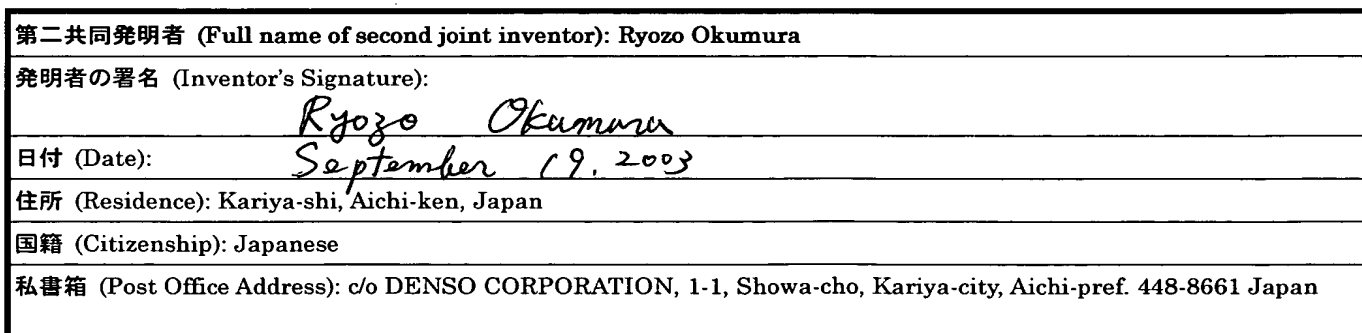 第二共同発明者 (Full name of second joint inventor): Ryozo Okumura
発明者の署名 (Inventor's Signature):
Ryozo Okumura
日付 (Date): September 19, 2003
住所 (Residence): Kariya-shi, Aichi-ken, Japan
国籍 (Citizenship): Japanese
私書箱 (Post Office Address): c/o DENSO CORPORATION, 1-1, Showa-cho, Kariya-city, Aichi-pref. 448-8661 Japan